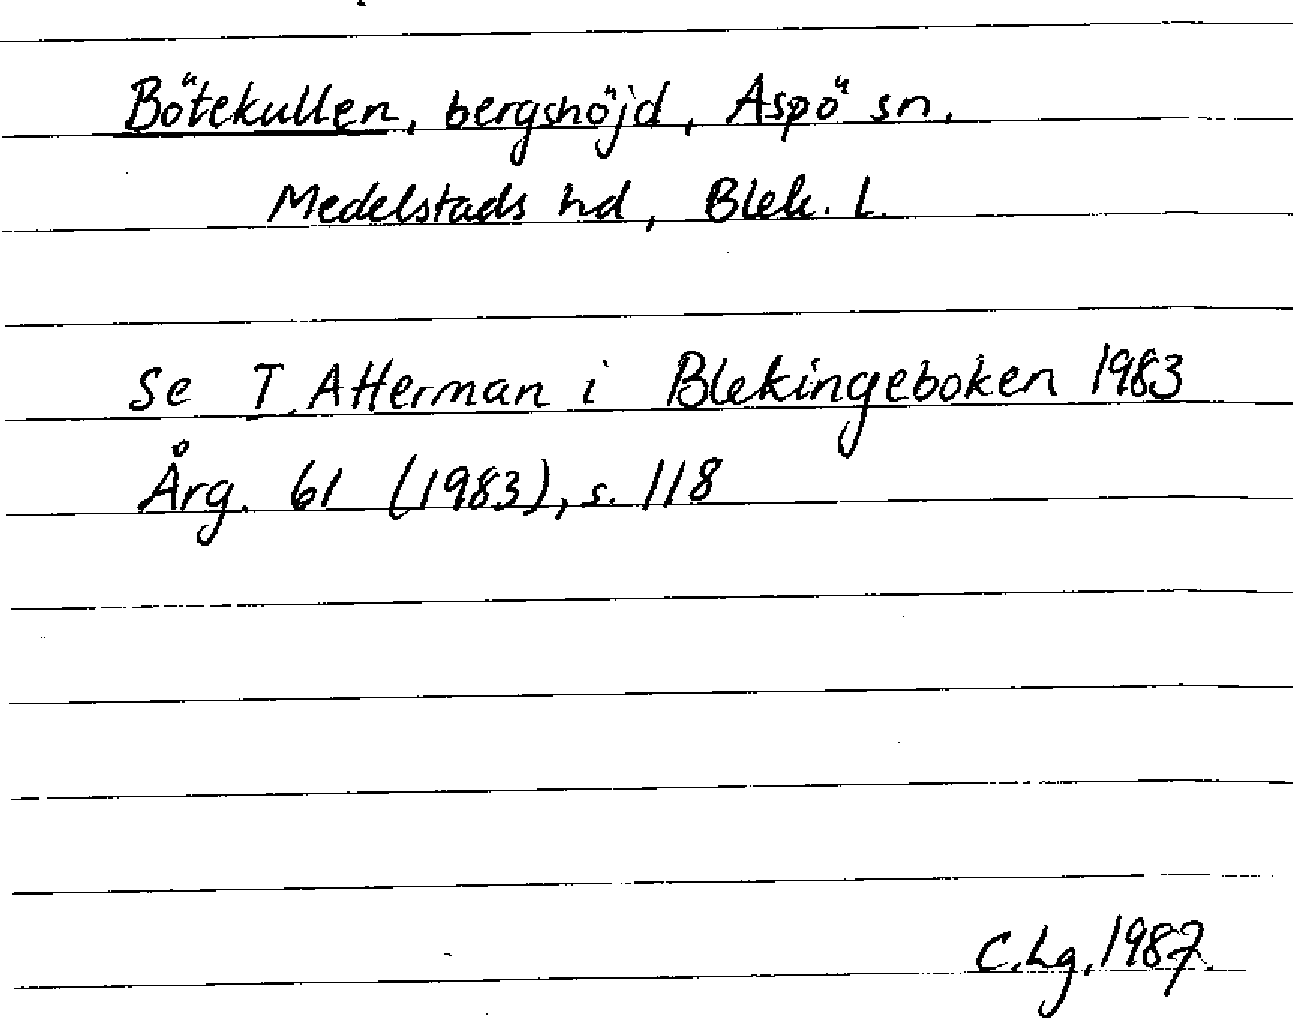 Bötekullen, bergshöjd, Aspö sn,
Medelstads hd, Blek. l.
Se T. Atterman i Blekingeboken 1983
Årg. 61 (1983), s. 118
C.Lg. 1987.